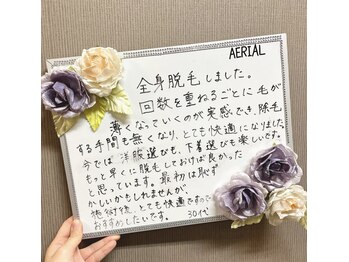 AERIAL
全身脱毛しました。
回数を重ねるごとに毛が
薄くなっていくのが実感でき、除毛
する手間も無くなり、とても快適になりました。
今では洋服選びも、下着選びも楽しいです。
もっと早くに脱毛しておけば良かった
と思っています。最初は恥ず
かしいかもしれませんが、
施術後、とても快適ですので
おすすめしたいです。 30代